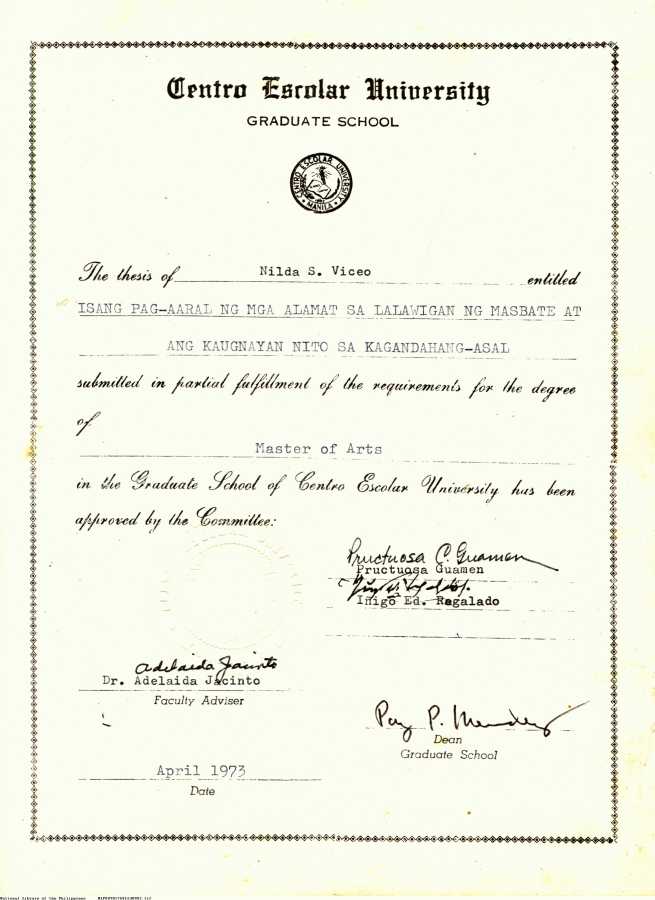 Centro Escolar University
GRADUATE SCHOOL
CENTRO ESCOLAR UNIVERSITY
MANILA
The thesis of Nilda S. Viceo entitled
ISANG PAG-AARAL NG MGA ALAMAT SA LALAWIGAN NG MASBATE AT
ANG KAUGNAYAN NITO SA KAGANDAHANG-ASAL
submitted in partial fulfillment of the requirements for the degree
of
Master of Arts
in the Graduate School of Centro Escolar University has been
approved by the Committee:
Pructuosa C. Guamen
Pructuosa Guamen
Iñigo Ed. Regalado
Adelaida Jacinto
Dr. Adelaida Jacinto
Faculty Adviser
Paz P. Mendez
Dean
Graduate School
April 1973
Date
National Library of the Philippines